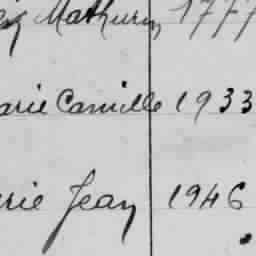 Mathurin 1777
arie Camille 1933
rie Jean 1946